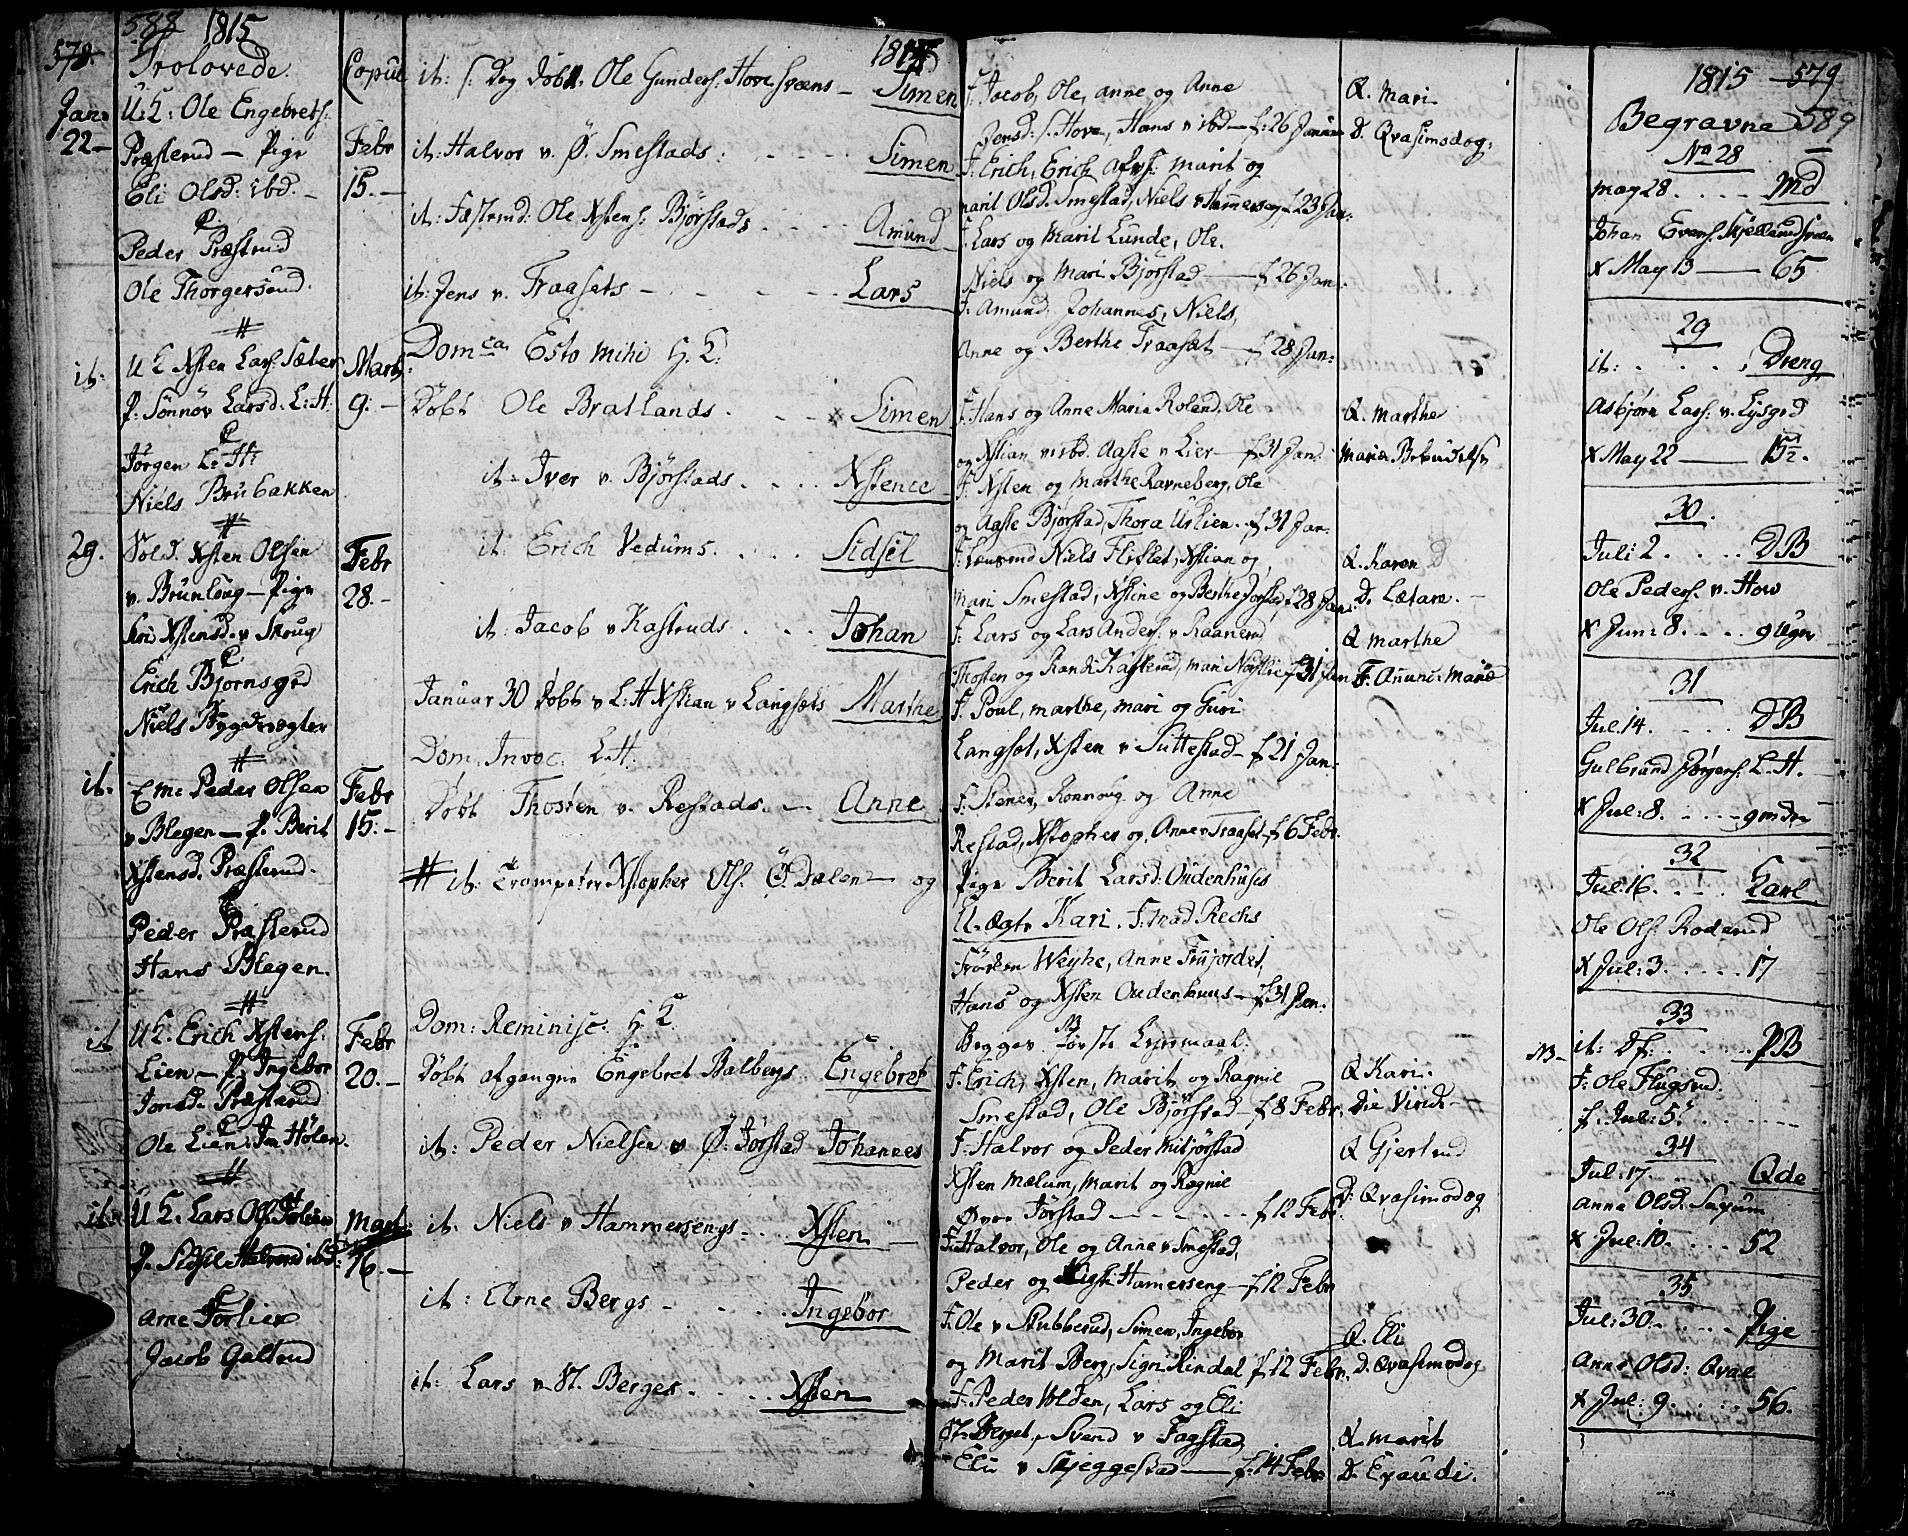 578.
588 1815
Trolovede.
Copul
Jan:
22 —
U: K: Ole Engebrets:
Præsterud — Pige
Eli Olsd: ibd. —
Febr
15. —
C.
Peder Præsterud
Ole Thorgersrud.
#
it:
U K Xsten Lars: Sæter
P. Sönnöv Larsd. L: H.
Marts
9. —
C
Jörgen L: H:
Niels Brubakken
#
29.
Sold. Xsten Olsen
v. Brunlaug — Pige
Siri Xstensd. v Skoug
Febr
28. —
C.
Erich Bjornsgrd
Niels Bygdvægter
#
it.
E. M: Peder Olsen
v Blegen — P. Berit
Xstensd. Præsterud.
Febr
15. —
C
Peder Præsterud
Hans Blegen.
#
it
U K. Erich Xstens:
Lien — P. Ingebor
Jonsd. Præsterud
Febr
20. —
C
Ole Lien: Jn Hölen.
#
it.
U K. Lars Ols: Forlien
P. Sidsel Halvorsd ibd:
Mart:
16. —
C
Arne Forlien
Jacob Galterud
1815
it: S. Dog döbt. Ole Gunders. Hove Sveens — Simen
it: Halvor v. Ö. Smestads. - - - - Simen
it: Fæstemd: Ole Xstens. Björstads - - - - Amund
it: Jens v. Fraasets - - - - Lars
Dom ca Esto mihi H. K.
Döbt Ole Bratlands. - - Simen
it: Iver v. Björstads. - - - Xstence
it: Erich Vedums. - - - Sidsel
it: Jacob v Kastruds. - - - Johan
Januar 30 Döbt v L: H Xstian v Langsets Marthe
Dom. Invoc. L. H.
Döbt Thosten v. Restads. — Anne
# it: Trompeter Xstopher Ols. Ö. Dælen — og
Dom: Reminisc: H. K.
Döbt afgangne Engebret Balbergs Engebret
it: Peder Nielsen v Ö. Jörstad Johannes
it: Niels v Hammersengs - - Xsten —
it: Arne Bergs - - - - Ingebor
it: Lars v St. Berges - - - - Xsten
F. Jacob, Ole, Anne og Anne
Jensd: S. Hove, Hans v ibd — f: 26 Januar
F. Erich, Erich Marit og
Marit Olsd. Smestad, Niels v Hammerseng f 23 Jan:
F. Lars og Marit Lunde, Ole.
Niels og Mari Björstad — f 26 Jan:
F. Amund, Johannes, Niels,
Anne og Berthe Fraaset — f 28 Jan:
F. Hans og Anne Maria Roland, Ole
og Xstian v ibd. Aasle v Lier — f 31 Jan.
F. Xsten og Marthe Ravneberg, Ole
og Aasle Björstad, Thora Uslien. f 31 Jan.
F. Niels Flikstet, Xstian og
Mari Smestad, Xstine og Berthe f 28 Jan.
F. Lars og Lars Anders. v Raanerud,
Thosten og Randi Kasterud, Mari f 31 Jan
F. Poul, Marthe, Mari og Guri
Langset, Xsten v Suttestad — f 21 Jan:
F. Stener, Ronnoug og Anne
Restad, Xstopher og Anne v Fraaset f 6 Febr.
Pige Berit Larsd: Oudenhuses
U. ægte Kari. F. Mad. Rechs
Fröken Weyhe, Anne Frujordet,
Hans og Xsten Oudenhuus — f 31 Jan:
NB
Begges förste Leiermaal.
F. Erich, Xsten, Marit og Ragnil
Smestad, Ole Björstad — f 8 Febr.
F. Halvor og Peder Mitjörstad
Xsten Mælum, Marit og Ragnil
Övre Jörstad - - - - - f 12 Febr.
F. Halvor, Ole og Anne v Smestad,
Peder og Hamerseng — f 12 Febr
F. Ole v Stubberud, Simen, Ingebor
og Marit Berg, Sigri Rindal f 12 Febr.
F. Peder Volden, Lars og Eli
St. Berget, Svend v Fagstad,
Eli v Skjeggestad — f. 14 Febr
Q. Mari
D. Qvasimodog:
Q. Marthe
Maria
Q. Karen
D. Lætare. —
Q Marthe
F. Anunc: Mariæ
Q Kari:
Die Virid: —
Q Gjertrud
D: Qvasimodog
Q. Eli
D. Qvasimodog
Q. Marit
D. Exaudi.
1815 — 579
589
Begravne
No 28
May 28. - - - Md
Johan Evens. Skjellerudsveen
X May 13 — 65
29
it: - - - Dreng
Asbjörn Lars. v. Lysgrd
X May 22 — 15½.
30.
Juli: 2. - - - DB
Ole Peders. v. How
X Jun: 8. - - - 9 Uger
31
Jul. 14. - - - DB
Gulbrand Jörgens. L. H.
X Jul: 8. - - - 9 mdr
32
Jul: 16. - - - Karl
Ole Ols: Roderud
X Jul: 3. - - - 17
33
NB —
it: Df: - - - PB
F: Ole Flugsrud.
f. Jul: 5. - - -
34
Jul: 17 - - - Qde
Anne Olsd. Saxum
X Jul: 10. - - - 52
35
Jul: 30. - - - Pige
Anne Olsd: Qvæl
X Jul: 9. - - - 56.